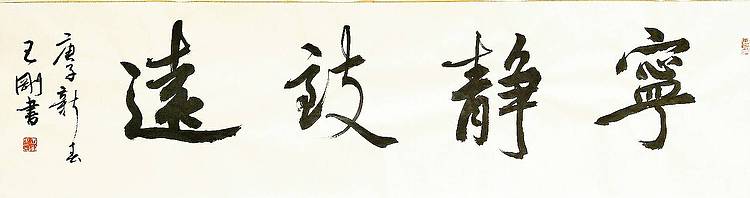 寧静致遠
庚子新春
王剛書